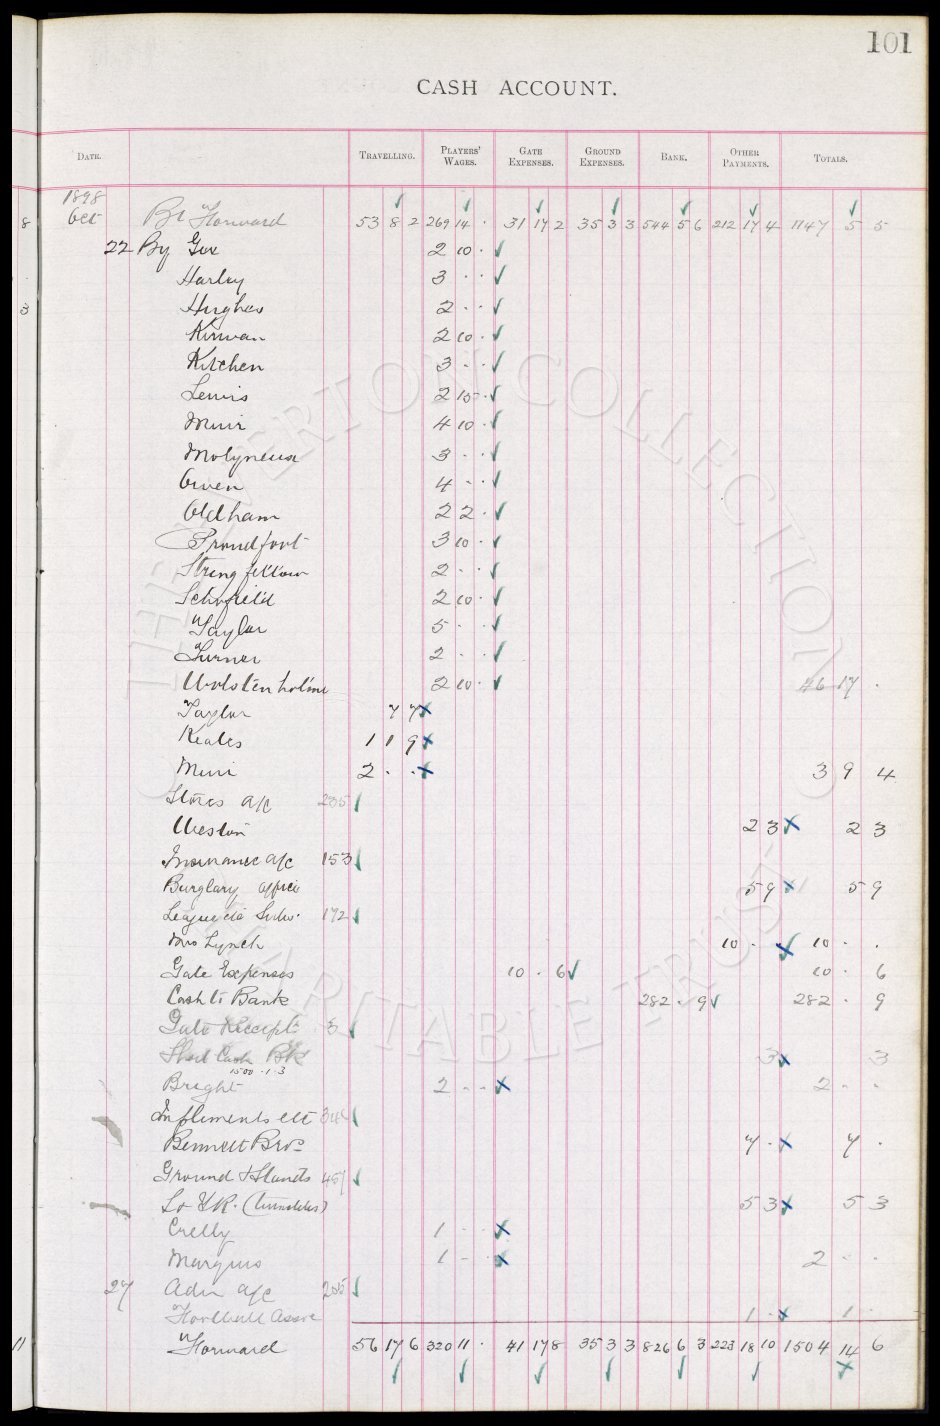 101
CASH ACCOUNT.
DATE. TRAVELLING. PLAYERS' WAGES. GATE EXPENSES. GROUND EXPENSES. BANK. OTHER PAYMENTS. TOTALS.
1898
Oct Bt Forward 53 8 2 269 14 · 31 17 2 35 3 3 544 5 6 212 17 4 1147 5 5
22 By Gee 2 10 ·
Harley 3 · ·
Hughes 2 · ·
Kirwan 2 10 ·
Kitchen 3 · ·
Lewis 2 15 ·
Muir 4 10 ·
Molyneux 3 · ·
Owen 4 · ·
Oldham 2 2 ·
Proudfoot 3 10 ·
Stringfellow 2 · ·
Schofield 2 10 ·
Taylor 5 · ·
Turner 2 · ·
Wolstenholme 2 10 · 46 17 ·
Taylor 7 7
Keates 1 1 9
Muir 2 · · 3 9 4
Stores a/c 205
Weston 2 3 2 3
Insurance a/c 153
Burglary office 5 9 5 9
League etc Subs. 172
Mrs Lynch 10 · 10 · ·
Gate Expenses 10 · 6 10 · 6
Cash to Bank 282 · 9 282 · 9
Gate Receipts 3
Short Cash Bk 3 3
1500 · 1 · 3
Bright 2 · · 2 · ·
Impliments etc
Bennett Bros 7 · 7 ·
Ground & Stands
L & Y R. 5 3 5 3
Crelly 1 · ·
Marquis 1 · · 2 · ·
27 Adv a/c 205
1 · 1 ·
Forward 56 17 6 320 11 · 41 17 8 35 3 3 826 6 3 223 18 10 1504 14 6
8
3
11
THE EVERTON COLLECTION CHARITABLE TRUST